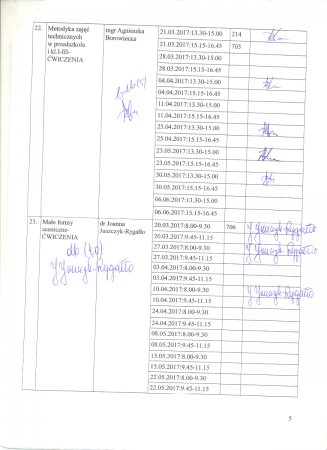 22. Metodyka zajęć technicznych w przedszkolu i kl.I-III- ĆWICZENIA
mgr Agnieszka Borowiecka
bdb(5)
21.03.2017:13.30-15.00 214
21.03.2017:15.15-16.45 703
28.03.2017:13.30-15.00
28.03.2017:15.15-16.45
04.04.2017:13.30-15.00
04.04.2017:15.15-16.45
11.04.2017:13.30-15.00
11.04.2017:15.15-16.45
25.04.2017:13.30-15.00
25.04.2017:15.15-16.45
23.05.2017:13.30-15.00
23.05.2017:15.15-16.45
30.05.2017:13.30-15.00
30.05.2017:15.15-16.45
06.06.2017:13.30-15.00
06.06.2017:15.15-16.45
23. Małe formy sceniczne- ĆWICZENIA
dr Joanna Juszczyk-Rygałło
db (4,0)
J Juszczyk-Rygałło
20.03.2017:8.00-9.30 706 J Juszczyk-Rygałło
20.03.2017:9.45-11.15
27.03.2017:8.00-9.30 J Juszczyk-Rygałło
27.03.2017:9.45-11.15
03.04.2017:8.00-9.30
03.04.2017:9.45-11.15
10.04.2017:8.00-9.30 J Juszczyk-Rygałło
10.04.2017:9.45-11.15
24.04.2017:8.00-9.30
24.04.2017:9.45-11.15
08.05.2017:8.00-9.30
08.05.2017:9.45-11.15
15.05.2017:8.00-9.30
15.05.2017:9.45-11.15
22.05.2017:8.00-9.30
22.05.2017:9.45-11.15
5